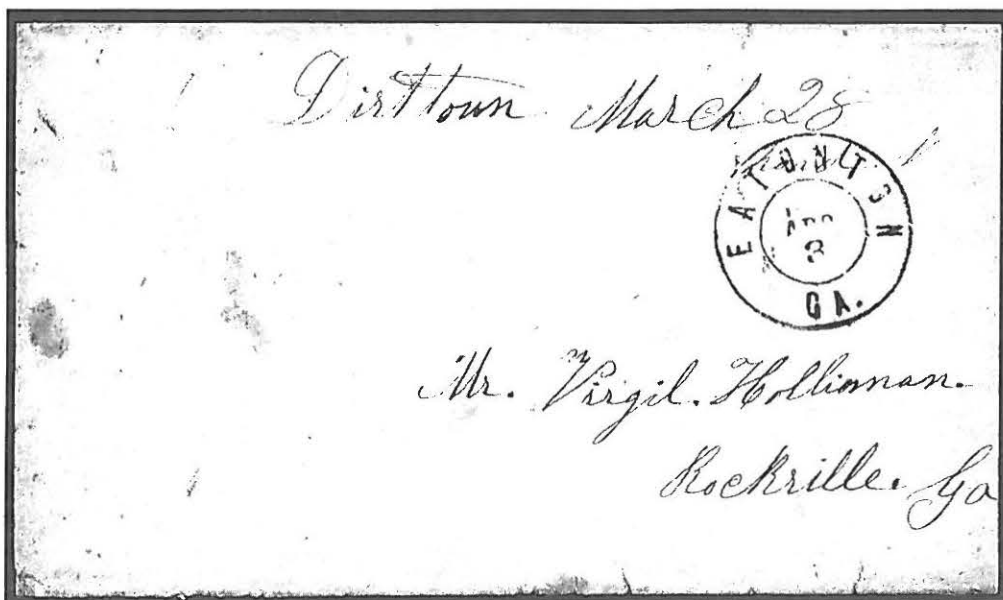 Dirttown March 28
EATONTON
APR
3
GA.
Mr. Virgil. Holliman.
Rockville. Ga